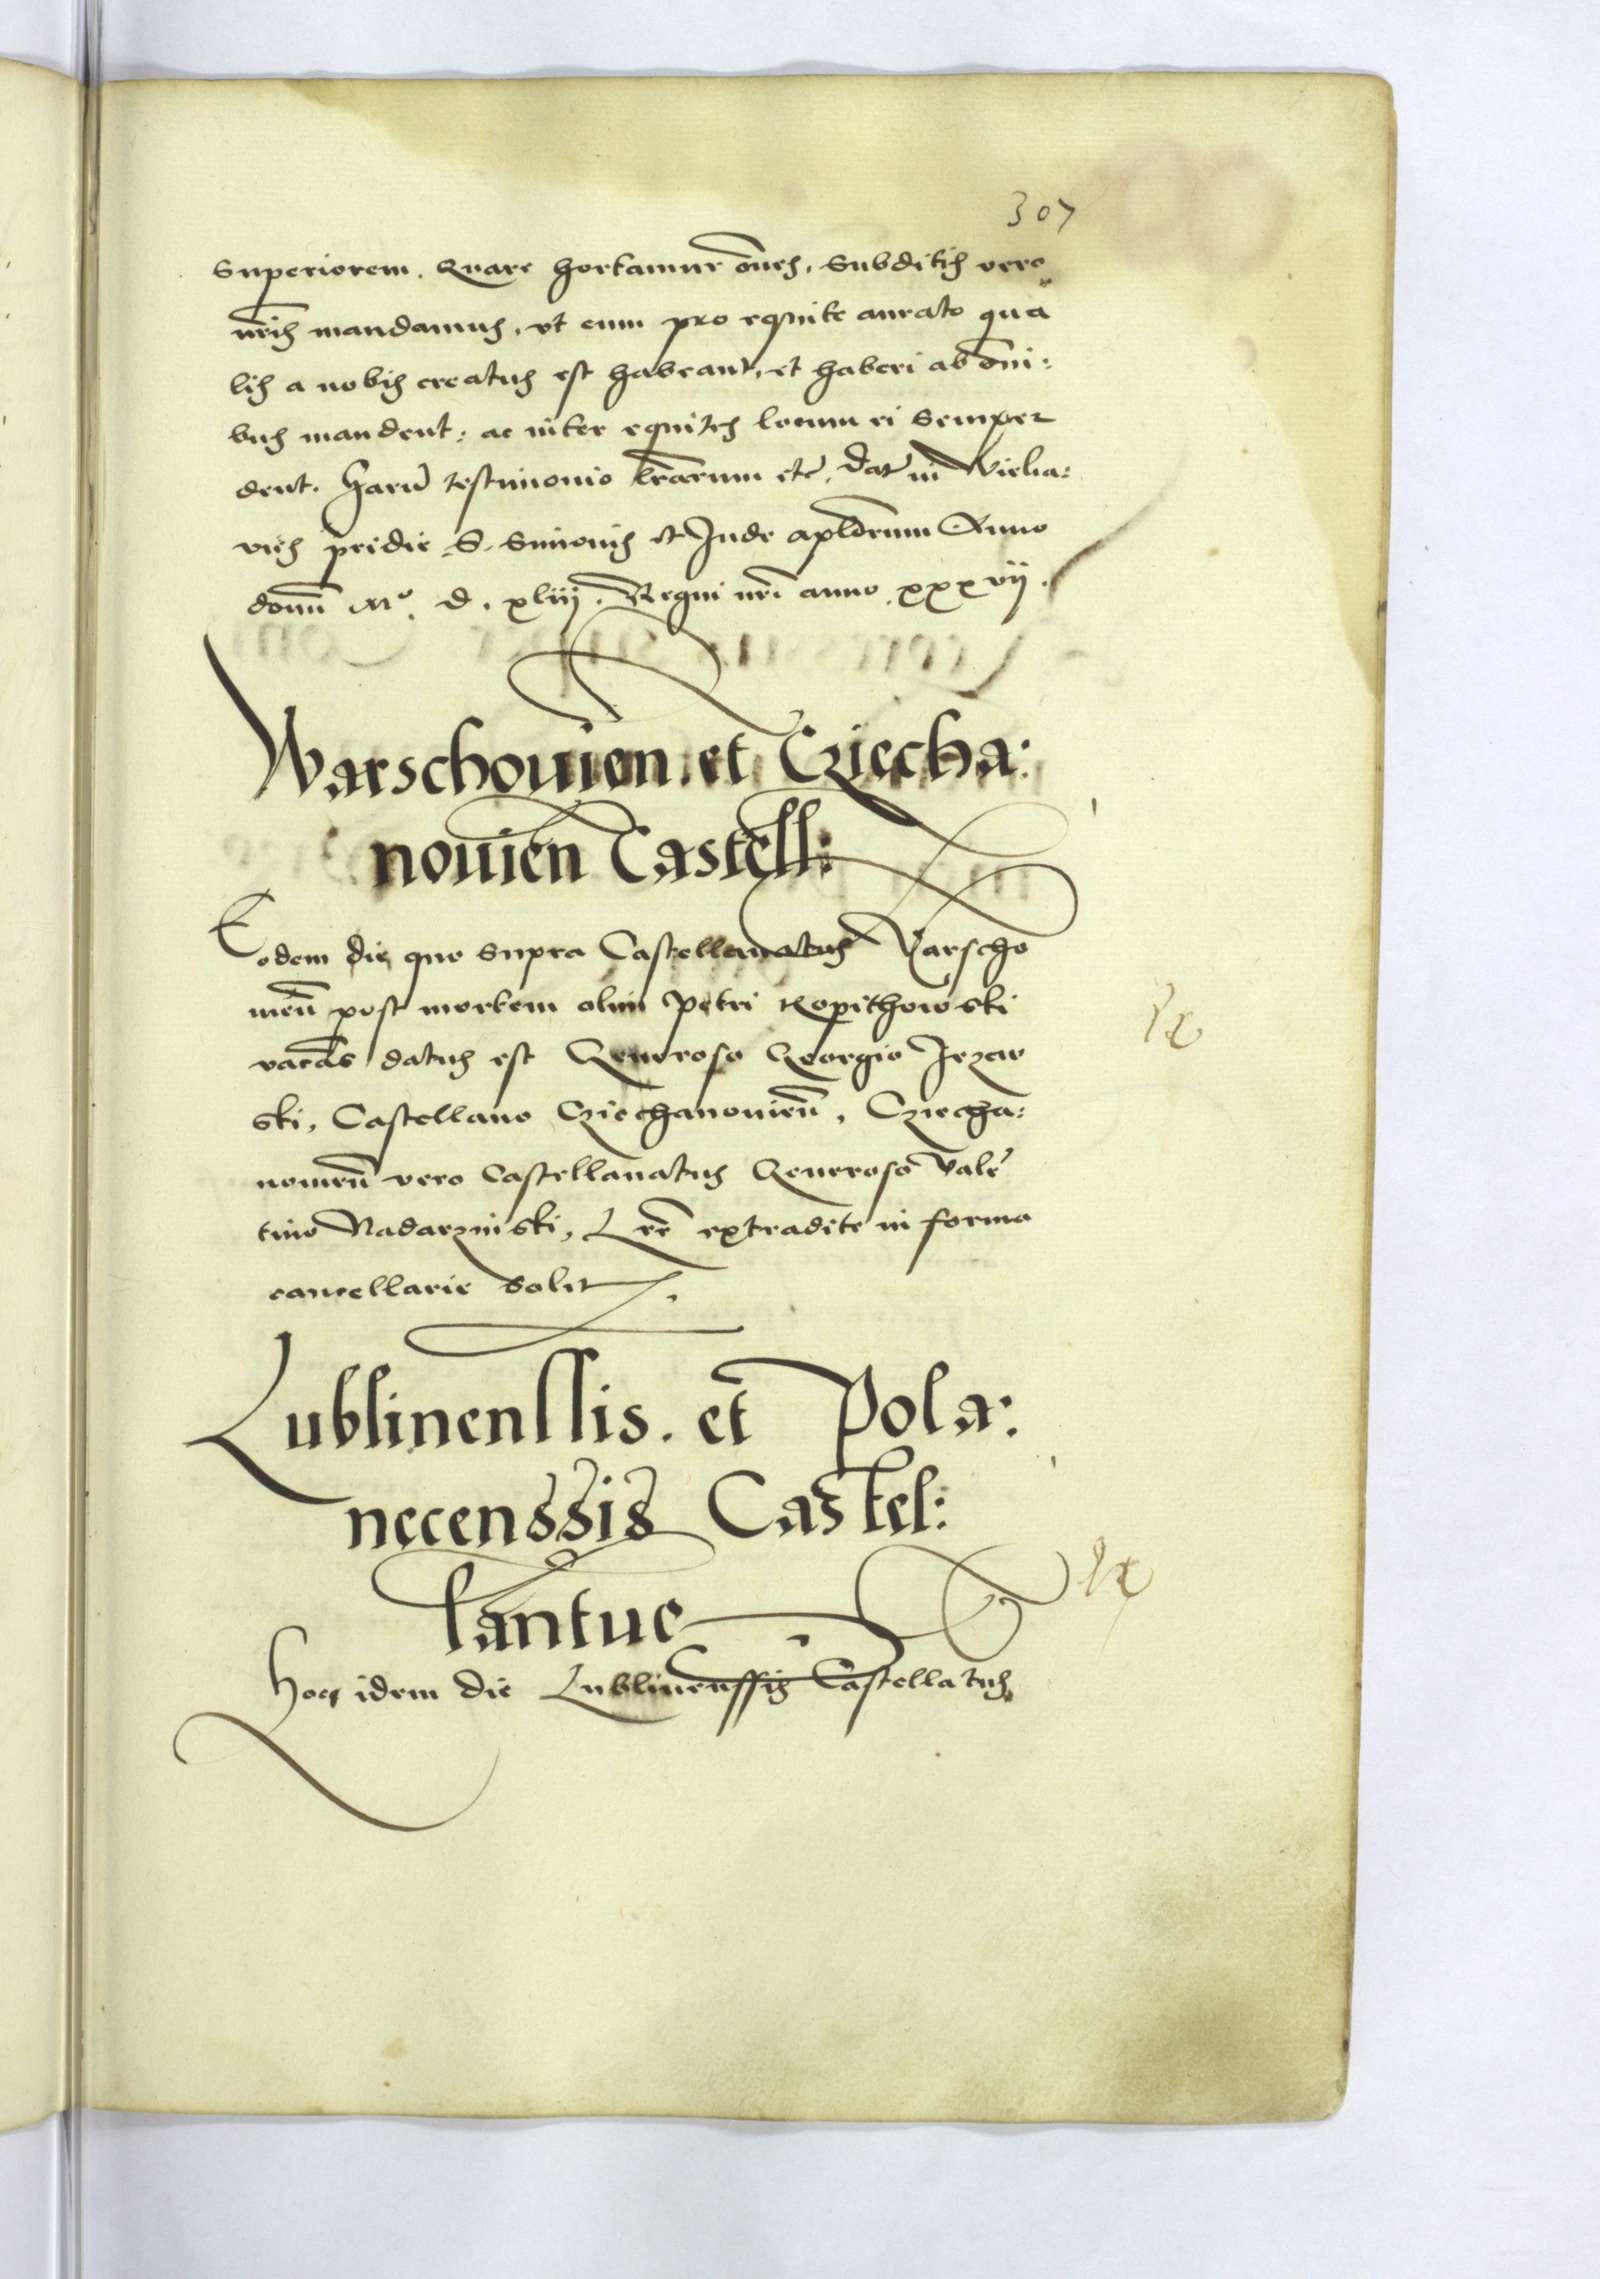 307
Superiorem. Quare hortamur om̄es, Subditis vero
nr̄is mandamus, vt eum pro equite aurato qua
lis a nobis creatus est habeant, et haberi ab om̄i:
bus mandent: ac inter equites locum ei Semper
dent. Harū testimonio l̄rarum etc̄, Dat̄ in
vicz pridie S. Simonis et Jude ap̄lorum Anno
domī Mº. D. xliij. Regni nr̄i anno xxxvij.
Warschouien. et Cziecha:
nouien̄ Castell:
Eodem die quo supra Castellanatus Varscho
uien̄ post mortem olim Petri Kopithowski
vacās datus est Generoso Georgio Jezew
ski, Castellano Cziechanouien̄, Cziecha:
nouien̄ vero Castellanatus Generoso Valē
tino Nadarzinski, Lr̄e extradite in forma
cancellarie solit
Lublinenssis. et Pola:
necenssis Castel:
lantue
Hoc idem die Lublinenssis Castellatus